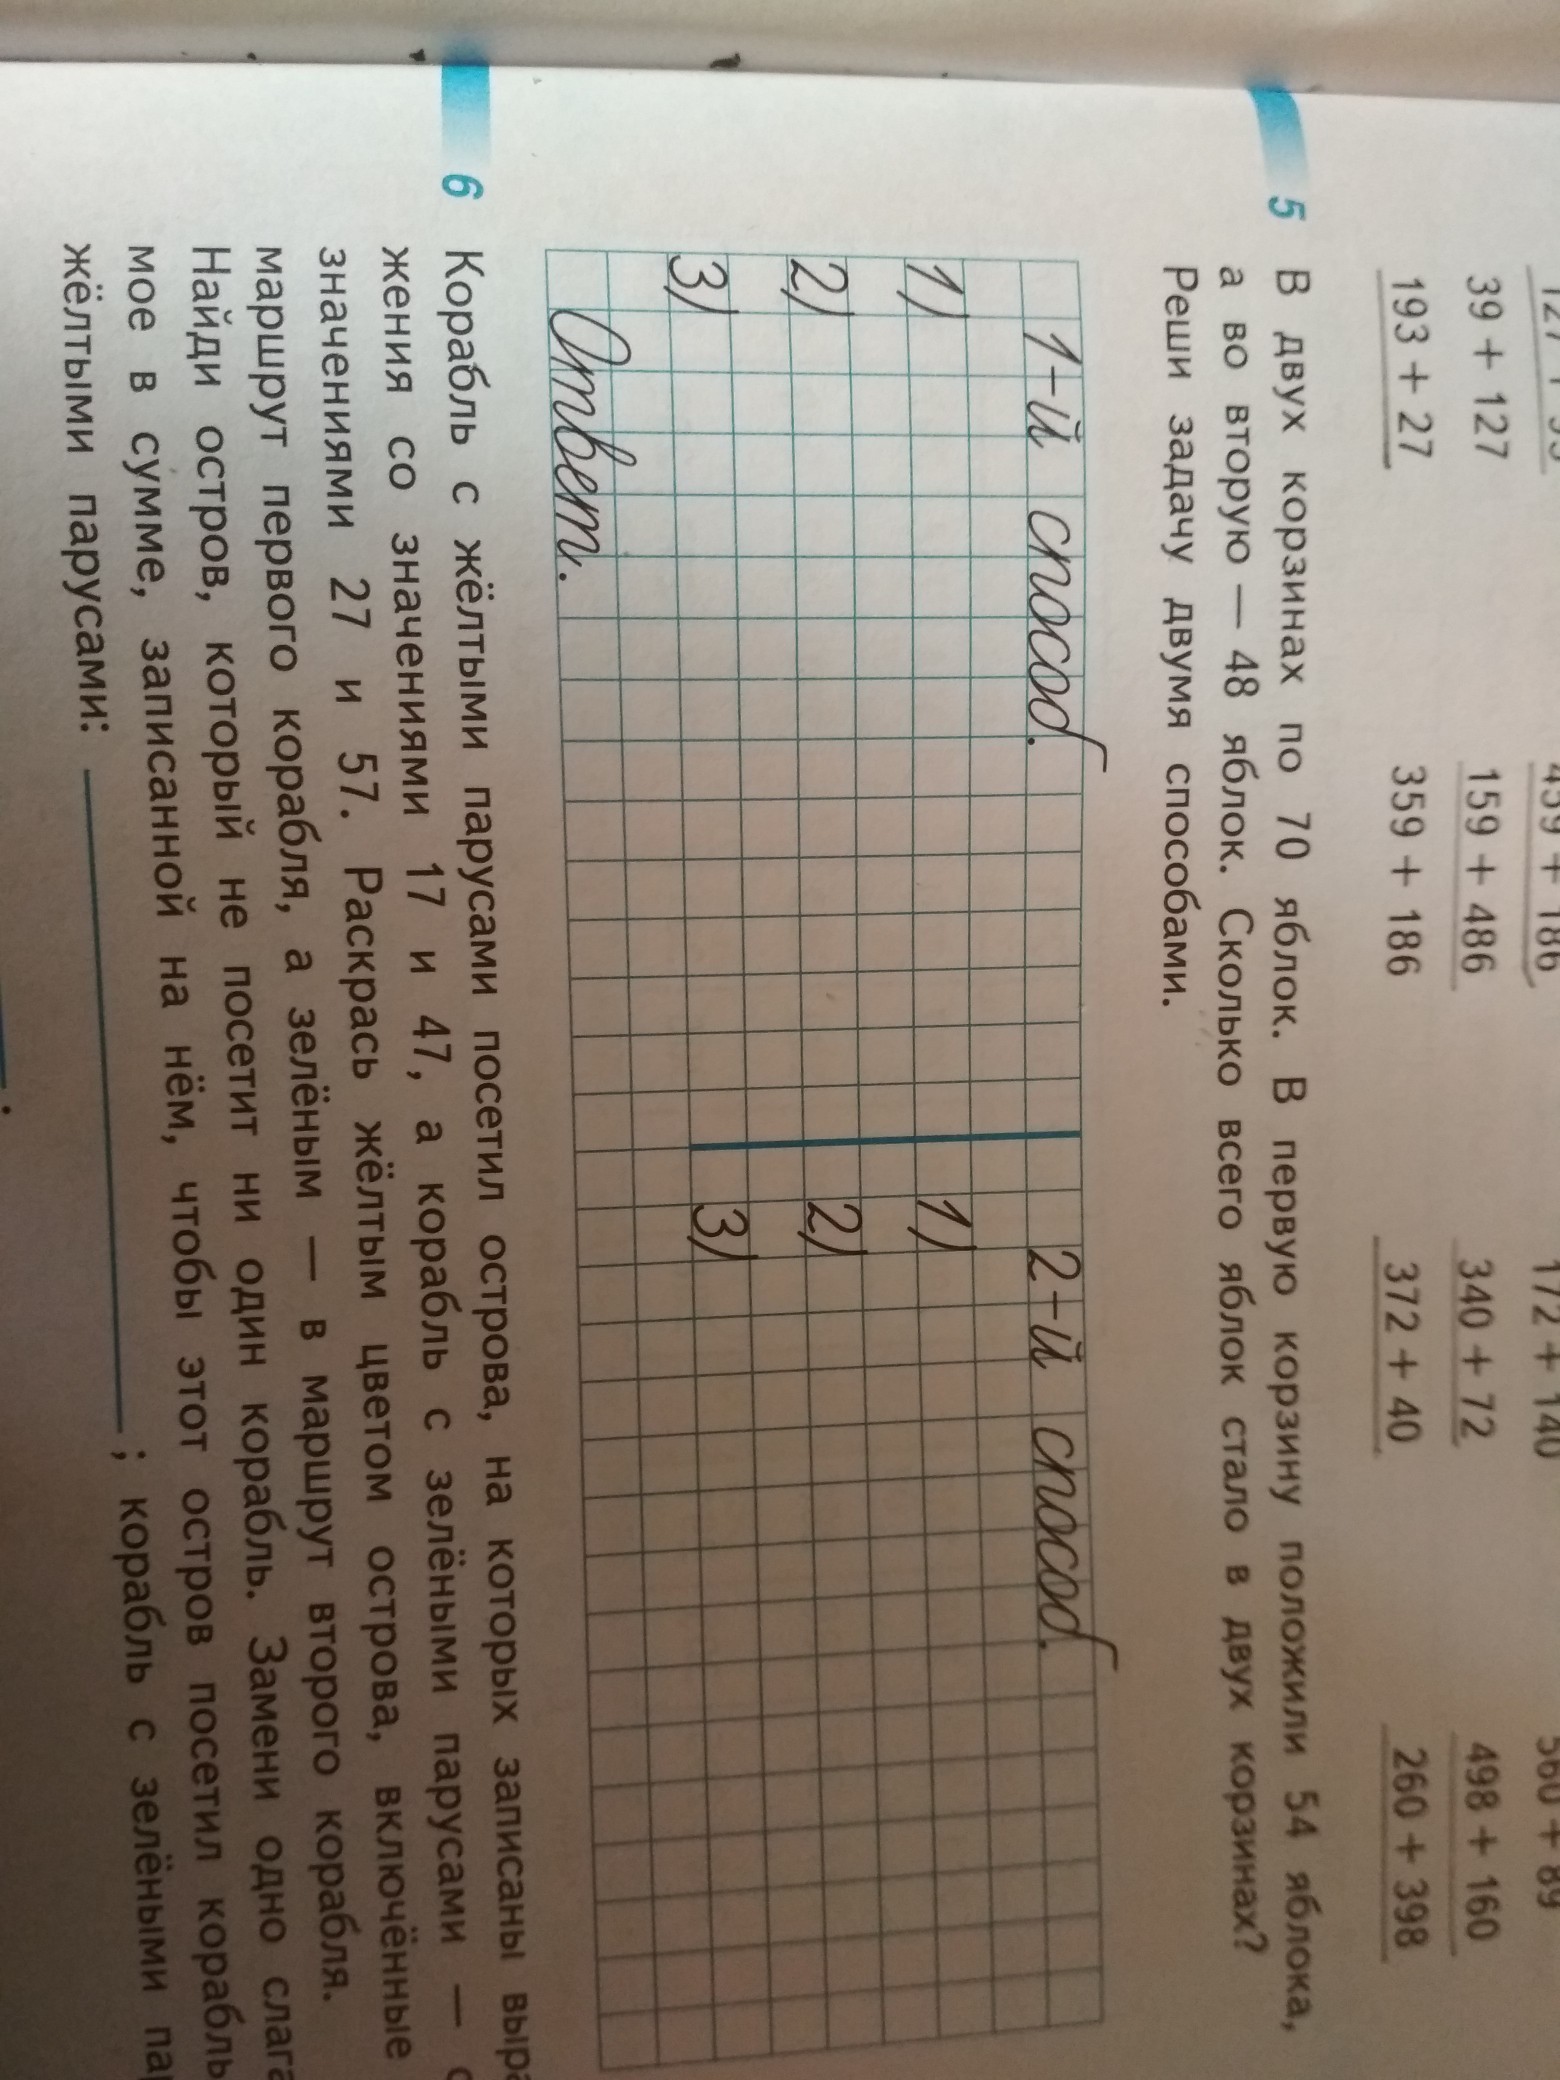 39 + 127 159 + 486 340 + 72 498 + 160
193 + 27 359 + 186 372 + 40 260 + 398
5 В двух корзинах по 70 яблок. В первую корзину положили 54 яблока,
а во вторую — 48 яблок. Сколько всего яблок стало в двух корзинах?
Реши задачу двумя способами.
1-й способ. 2-й способ.
1) 1)
2) 2)
3) 3)
Ответ.
6 Корабль с жёлтыми парусами посетил острова, на которых записаны выра
жения со значениями 17 и 47, а корабль с зелёными парусами — с
значениями 27 и 57. Раскрась жёлтым цветом острова, включённые
маршрут первого корабля, а зелёным — в маршрут второго корабля.
Найди остров, который не посетит ни один корабль. Замени одно слага
мое в сумме, записанной на нём, чтобы этот остров посетил корабль
жёлтыми парусами: ; корабль с зелёными па